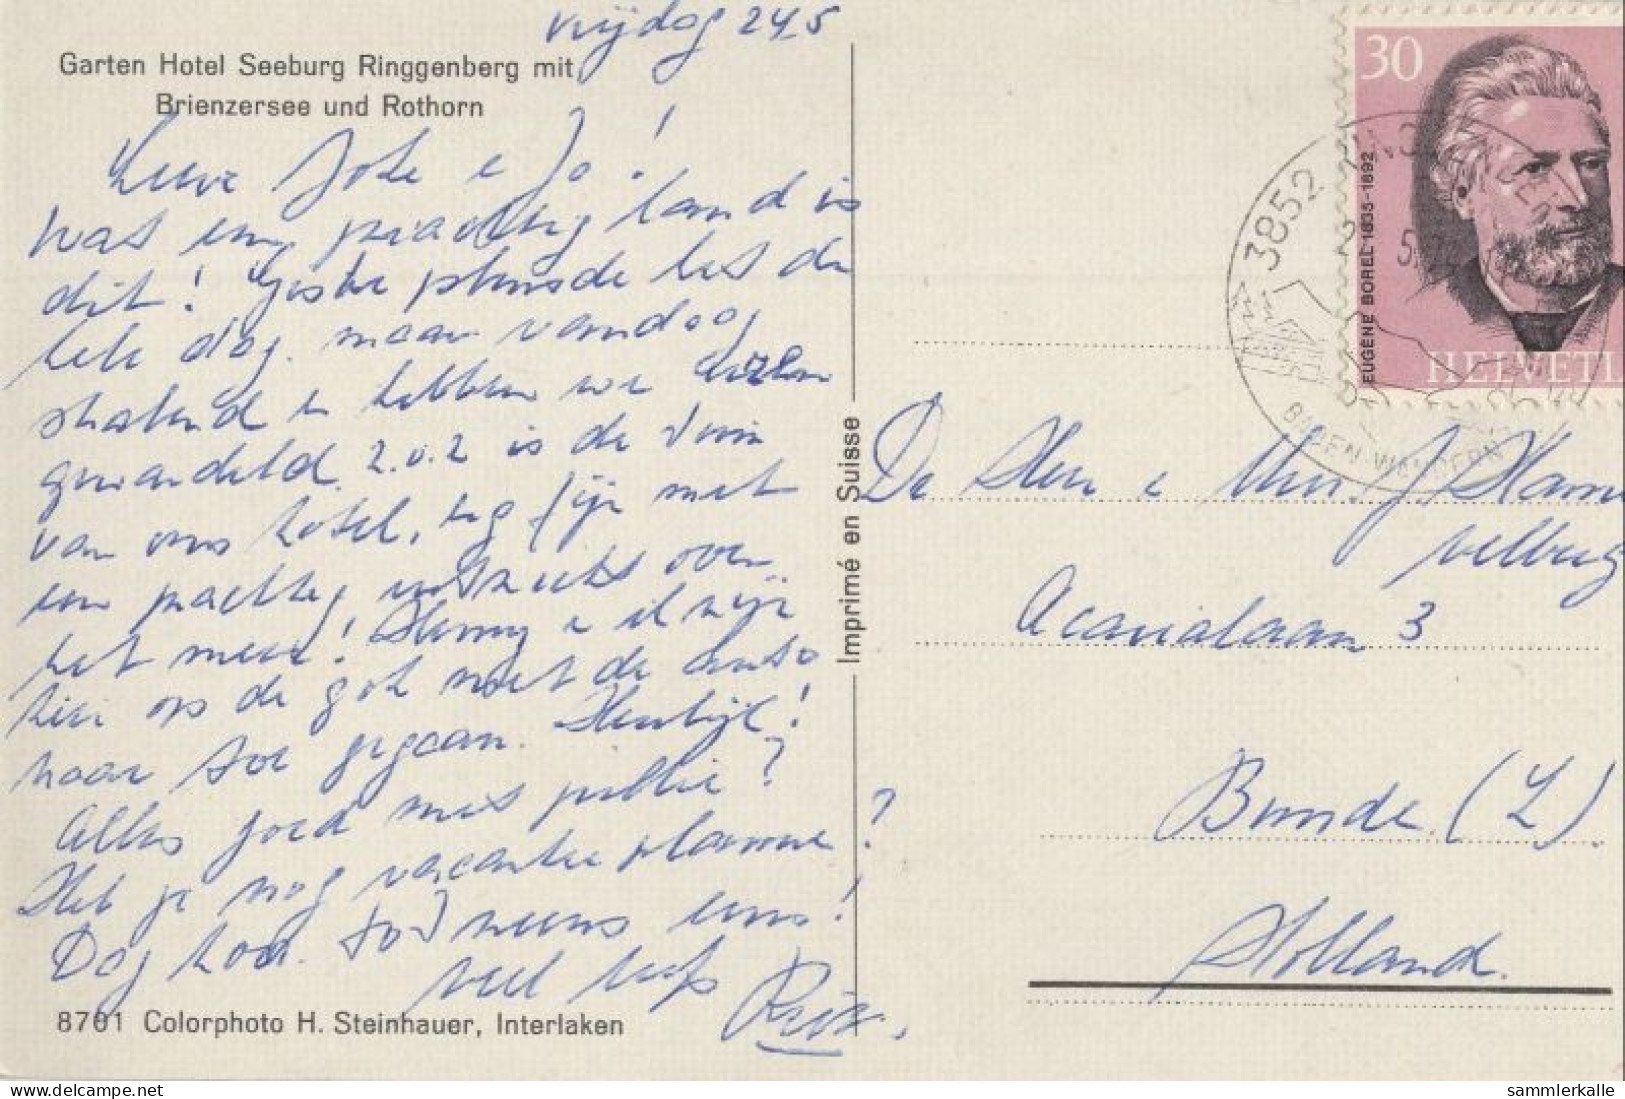 vrijdag 24/5
Garten Hotel Seeburg Ringgenberg mit
Brienzersee und Rothorn
Lieve Joke e Jo!
Wat een prachtig land is
dit! Giste plensde het de
hele dag. maar vandaag
stralend en hebben we
gewandeld. 2.o.2 is de tuin
van ons hotel, erg fijn met
een prachtig uitzicht over
het meer! Harry e ik zijn
hier op de gok met de auto
naar toe gegaan. Heerlijk!
Alles goed met jullie?
Heb je nog vacantie plannen?
Dag hoor. tot ineens eens!
veel liefs
8701 Colorphoto H. Steinhauer, Interlaken
Imprimé en Suisse
30
EUGÈNE BOREL 1835-1892
HELVETI
3852
BADEN-WANDERN
De Heer e Mevr. J Ham
velburg
Acacialaan 3
Bunde (L).
Holland.
www.delcampe.net
sammlerkalle